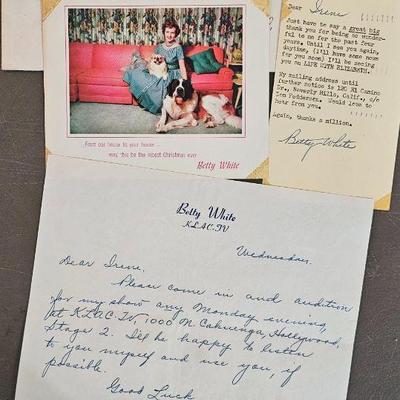 From our house to your house —
may this be the nicest Christmas ever
Betty White
Dear Irene
Just have to say a great big
thank you for being so wonder-
ful to me for the past four
years. Until I see you again,
daytime, (I'll have some news
for you soon) I'll be seeing
you on LIFE WITH ELIZABETH.
My mailing address until
further notice is 120 El Camino
Dr., Beverly Hills, Calif., c/o
Don Fedderson. Would love to
hear from you.
Again, thanks a million.
Betty White
Betty White
KLAC-TV
Wednesday.
Dear Irene,
Please come in and audition
for my show any Monday evening,
at KLAC-TV, 1000 N. Cahuenga, Hollywood,
Stage 2. I'll be happy to listen
to you myself and use you, if
possible.
Good Luck